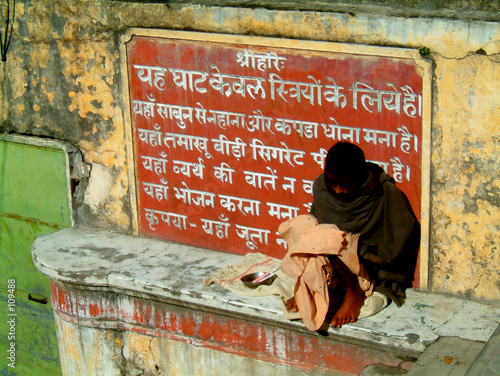 श्रीहरिः
यह घाट केवल स्त्रियों के लिये है।
यहाँ साबुन से नहाना और कपडा धोना मना है।
यहाँ तमाखू बीड़ी सिगरेट है।
यहाँ व्यर्थ की बातें न
यहाँ भोजन करना
कृपया - यहाँ जूता
Adobe Stock | #109488